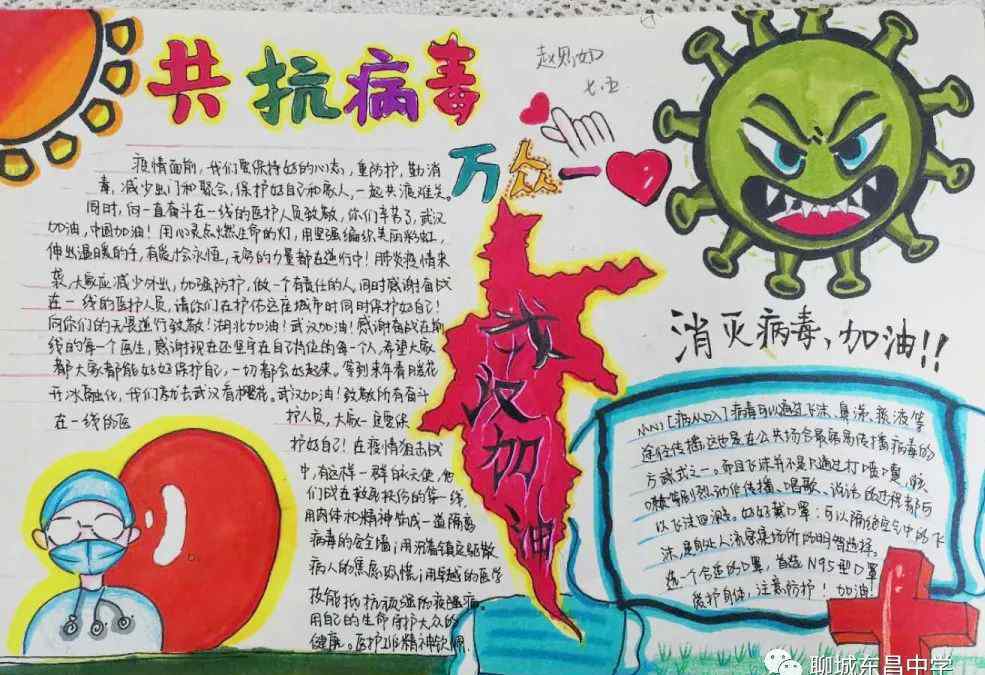 共抗病毒
赵思如
七.五
万众一
疫情面前,我们要保持好的心态,重防护,勤消
毒,减少出门和聚会,保护好自己和家人,一起共渡难关。
同时,向一直奋斗在一线的医护人员致敬,你们辛苦了,武汉
加油,中国加油!用心灵点燃生命的灯,用坚强编织美丽彩虹,
伸出温暖的手,有爱恰永恒,无穷的力量都在进行中!肺炎疫情来
袭,大家应减少外出,加强防护,做一个有责任的人,同时感谢奋战
在一线的医护人员,请你们在护佑这座城市时同时保护好自己!
向你们的无畏逆行致敬!湖北加油!武汉加油!感谢奋战在前
线的每一个医生,感谢现在还坚守在自己岗位的每一个人,希望大家
都大家都能好好保护自己,一切都会好起来,等到来年春暖花
开冰雪融化,我们就去武汉看樱花。武汉加油!致敬所有奋斗
在一线的医
护人员,大家一定要保
护好自己!在疫情狙击战
中,有这样一群白衣天使,他
们战在救死扶伤的第一线
用肉体和精神筑成一道隔离
病毒的安全墙;用沉着镇定驱散
病人的焦虑恐慌;用卓越的医学
技能抵抗顽强的疫魔病
用自己的生命守护大众的
健康。医护工作精神钦佩.
武汉加油
消灭病毒、加油!!
病毒可以通过飞沫、鼻涕、痰液等
途径传播,这也是在公共场合最容易传播病毒的
方式之一。而且飞沫并不是只通过打喷嚏,咳
嗽等剧烈动作传播、唱歌、说话的过程都可
以飞沫四溅。好好戴口罩:可以隔绝空气中的飞
沫,是身处人流密集场所的明智选择。
选一个合适的口罩,首选N95型口罩
爱护身体,注意防护!加油!
聊城东昌中学